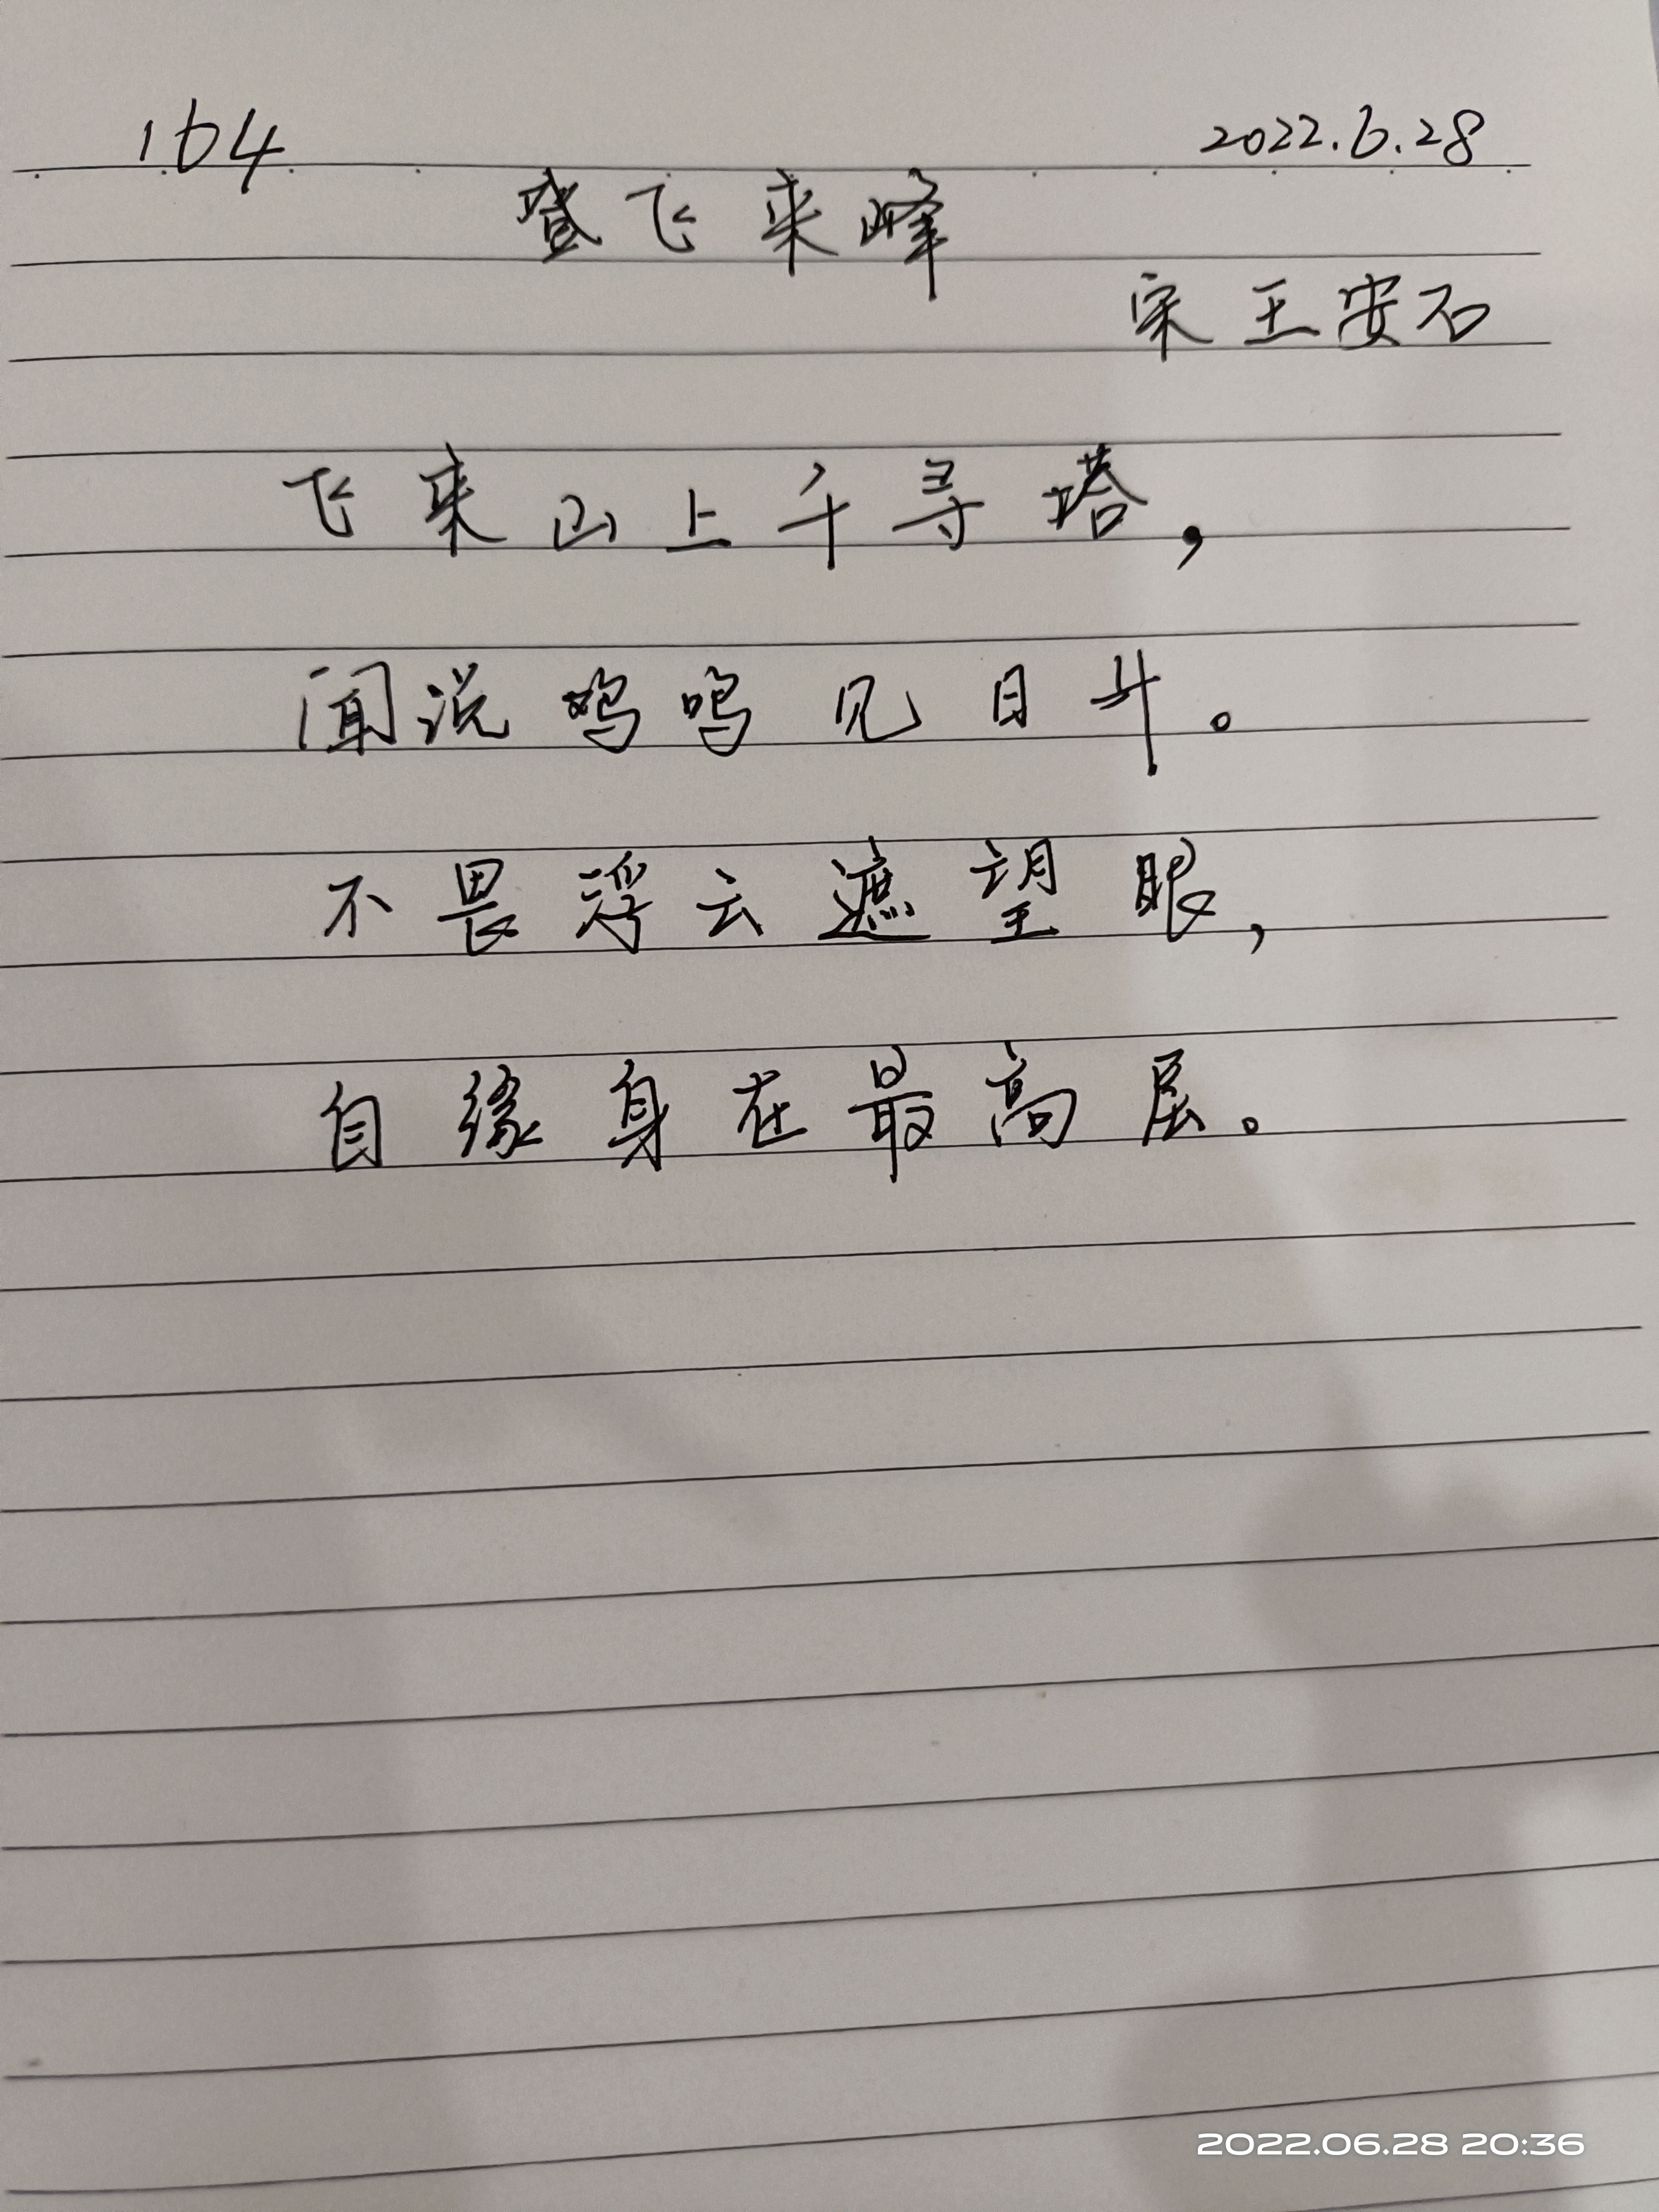 164
2022.6.28
登飞来峰
宋 王安石
飞来山上千寻塔，
闻说鸡鸣见日斗。
不畏浮云遮望眼，
自缘身在最高层。
2022.06.28 20:36